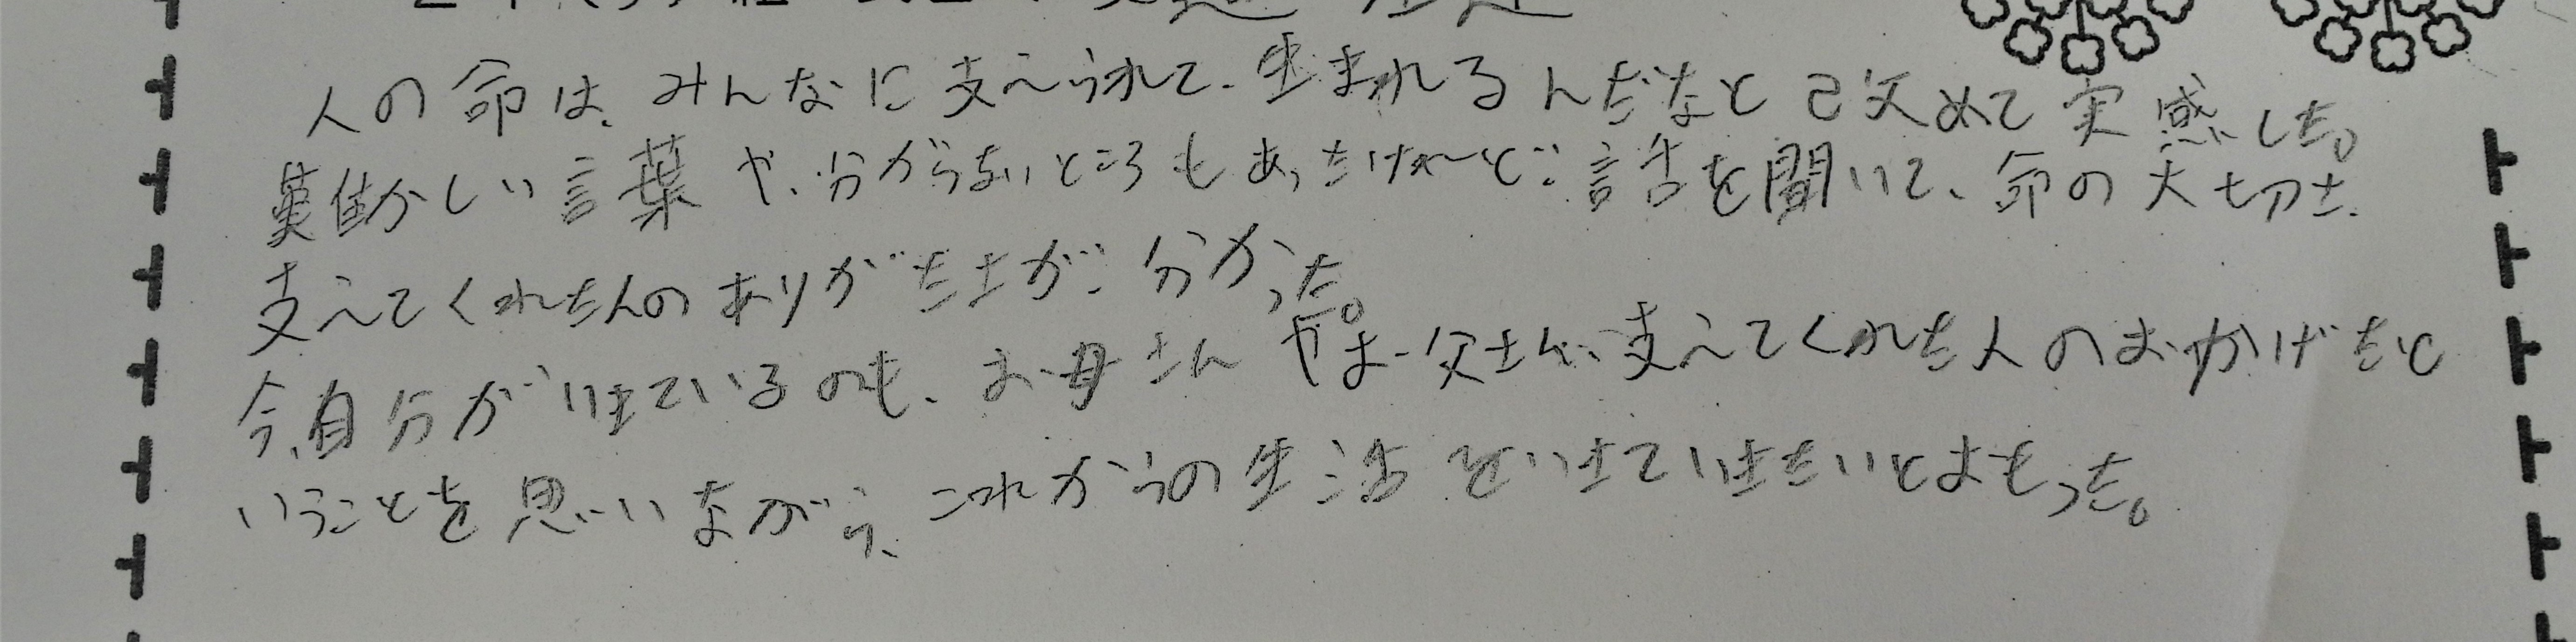 人の命は、みんなに支えられて、生まれるんだなと改めて実感した。
難しい言葉や、分からないところもあったけれど、話を聞いて、命の大切さ、
支えてくれた人のありがたさが分かった。
今、自分が生きているのも、お母さんやお父さん、支えてくれた人のおかげだと
いうことを思いながら、これからの生活を生きていきたいとおもった。